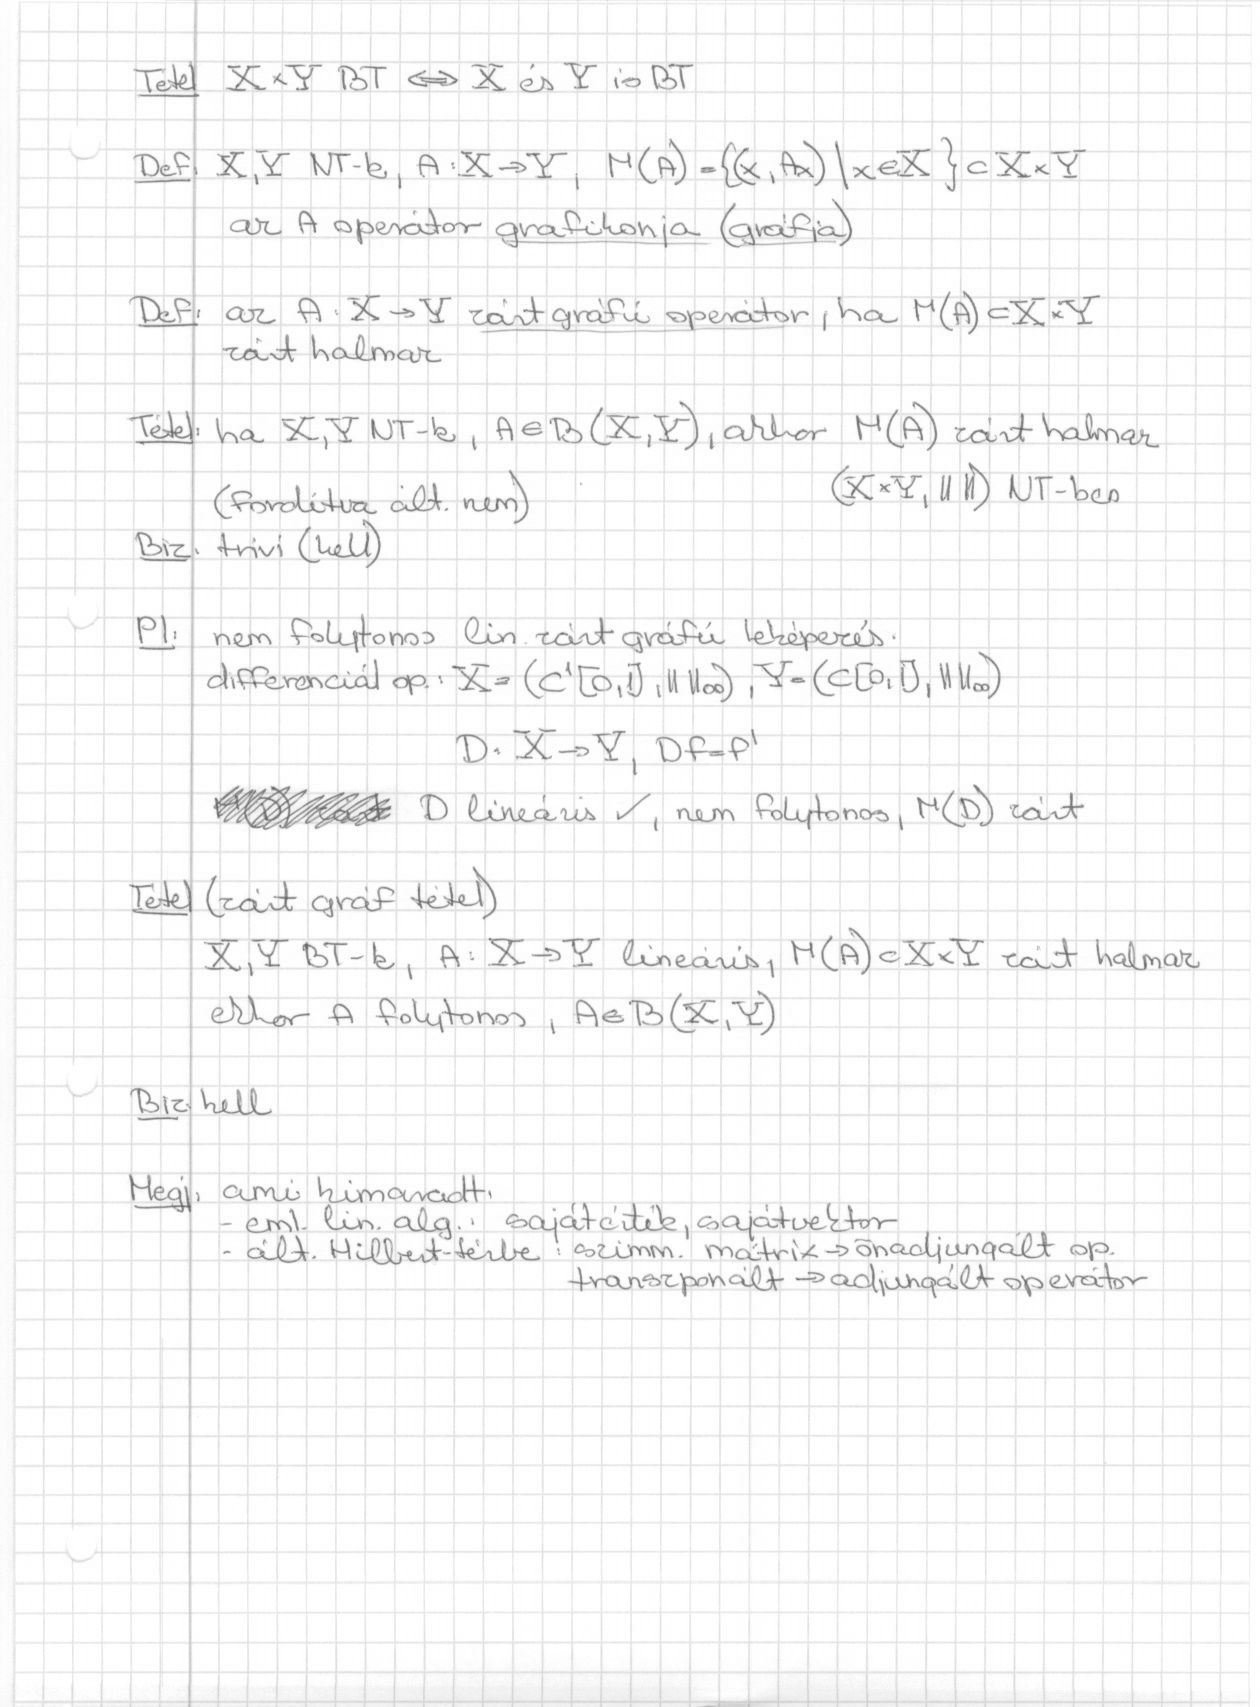 Tétel X×Y BT ⇔ X és Y is BT
Def. X,Y NT-k, A:X→Y, M(A)={(x,Ax) | x∈X} ⊂ X×Y
az A operátor grafikonja (gráfja)
Def: az A:X→Y zárt gráfú operátor, ha M(A)⊂X×Y
zárt halmaz
Tétel: ha X,Y NT-k, A∈B(X,Y), akkor M(A) zárt halmaz
(fordítva ált. nem) (X×Y, ‖ ‖) NT-ben
Biz. trivi (kell)
Pl: nem folytonos lin. zárt gráfú leképezés.
differenciál op.: X=(C¹[0,1], ‖ ‖∞), Y=(C[0,1], ‖ ‖∞)
D: X→Y, Df=f'
D lineáris ✓, nem folytonos, M(D) zárt
Tétel (zárt gráf tétel)
X,Y BT-k, A: X→Y lineáris, M(A)⊂X×Y zárt halmaz
ekkor A folytonos, A∈B(X,Y)
Biz. kell
Megj. ami kimaradt:
- eml. lin. alg.: sajátérték, sajátvektor
- ált. Hilbert-térbe: szimm. mátrix → önadjungált op.
transzponált → adjungált operátor